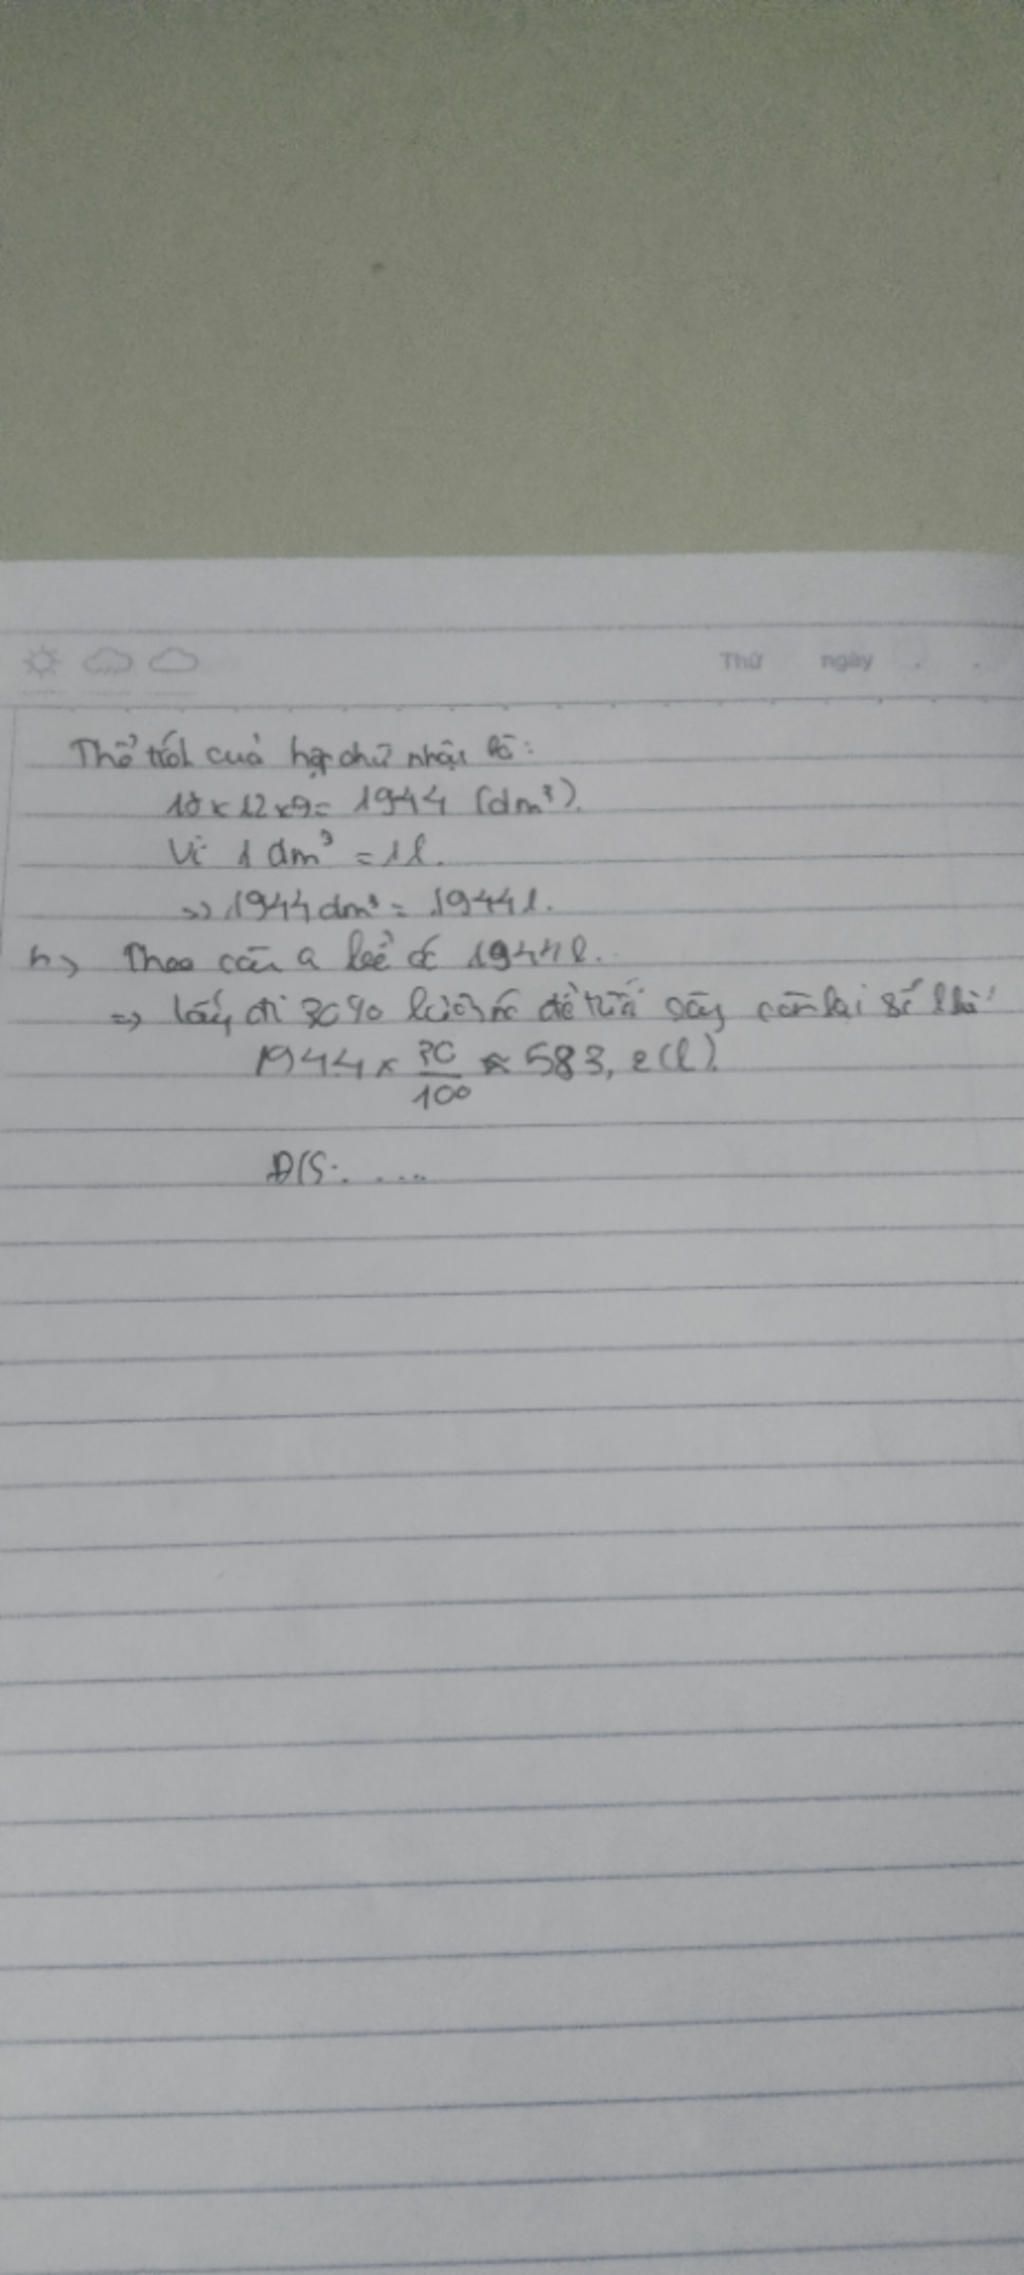 Thứ ngày
Thể tích cuả hộp chữ nhật là:
18 x 12 x 9 = 1944 (dm³).
Vì 1 dm³ = 1l.
=> 1944 dm³ = 1944 l.
b, Theo câu a bể có 1944 l.
=> lấy đi 30% để tưới còn lại số l là:
1944 x 30/100 = 583,2 (l).
Đ/S: .....